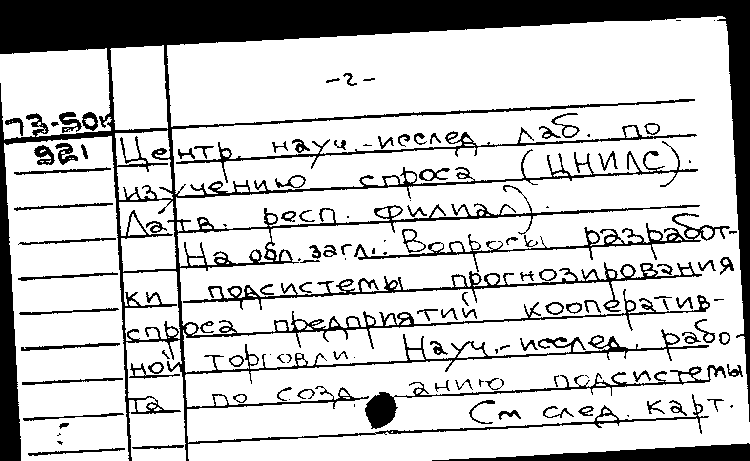 -2-
73-50к
921
Центр. науч.-исслед. лаб. по
изучению спроса (ЦНИЛС).
Латв. респ. филиал).
На обл. загл.: Вопросы разработ-
ки подсистемы прогнозирования
спроса предприятий кооператив-
ной торговли. Науч.-исслед. рабо-
та по созд анию подсистемы
См след. карт.